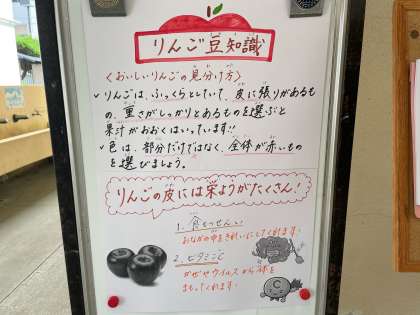 りんご豆知識
〈おいしいりんごの見分け方〉
✓りんごは、ふっくらとしていて、皮に張りがあるも
の、重さがしっかりとあるものを選ぶと
果汁がおおくはいっています!!
✓色は、部分だけではなく、全体が赤いもの
を選びましょう。
りんごの皮には栄ようがたくさん!
1. 食もつせんい
おなかの中をきれいにしてくれます!
2. ビタミンC
かぜやウイルスから体を
まもってくれます!
C